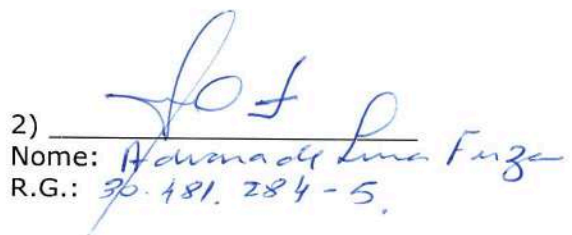 2)
Nome: Adriana de Lima
R.G.: 30.481.284-5